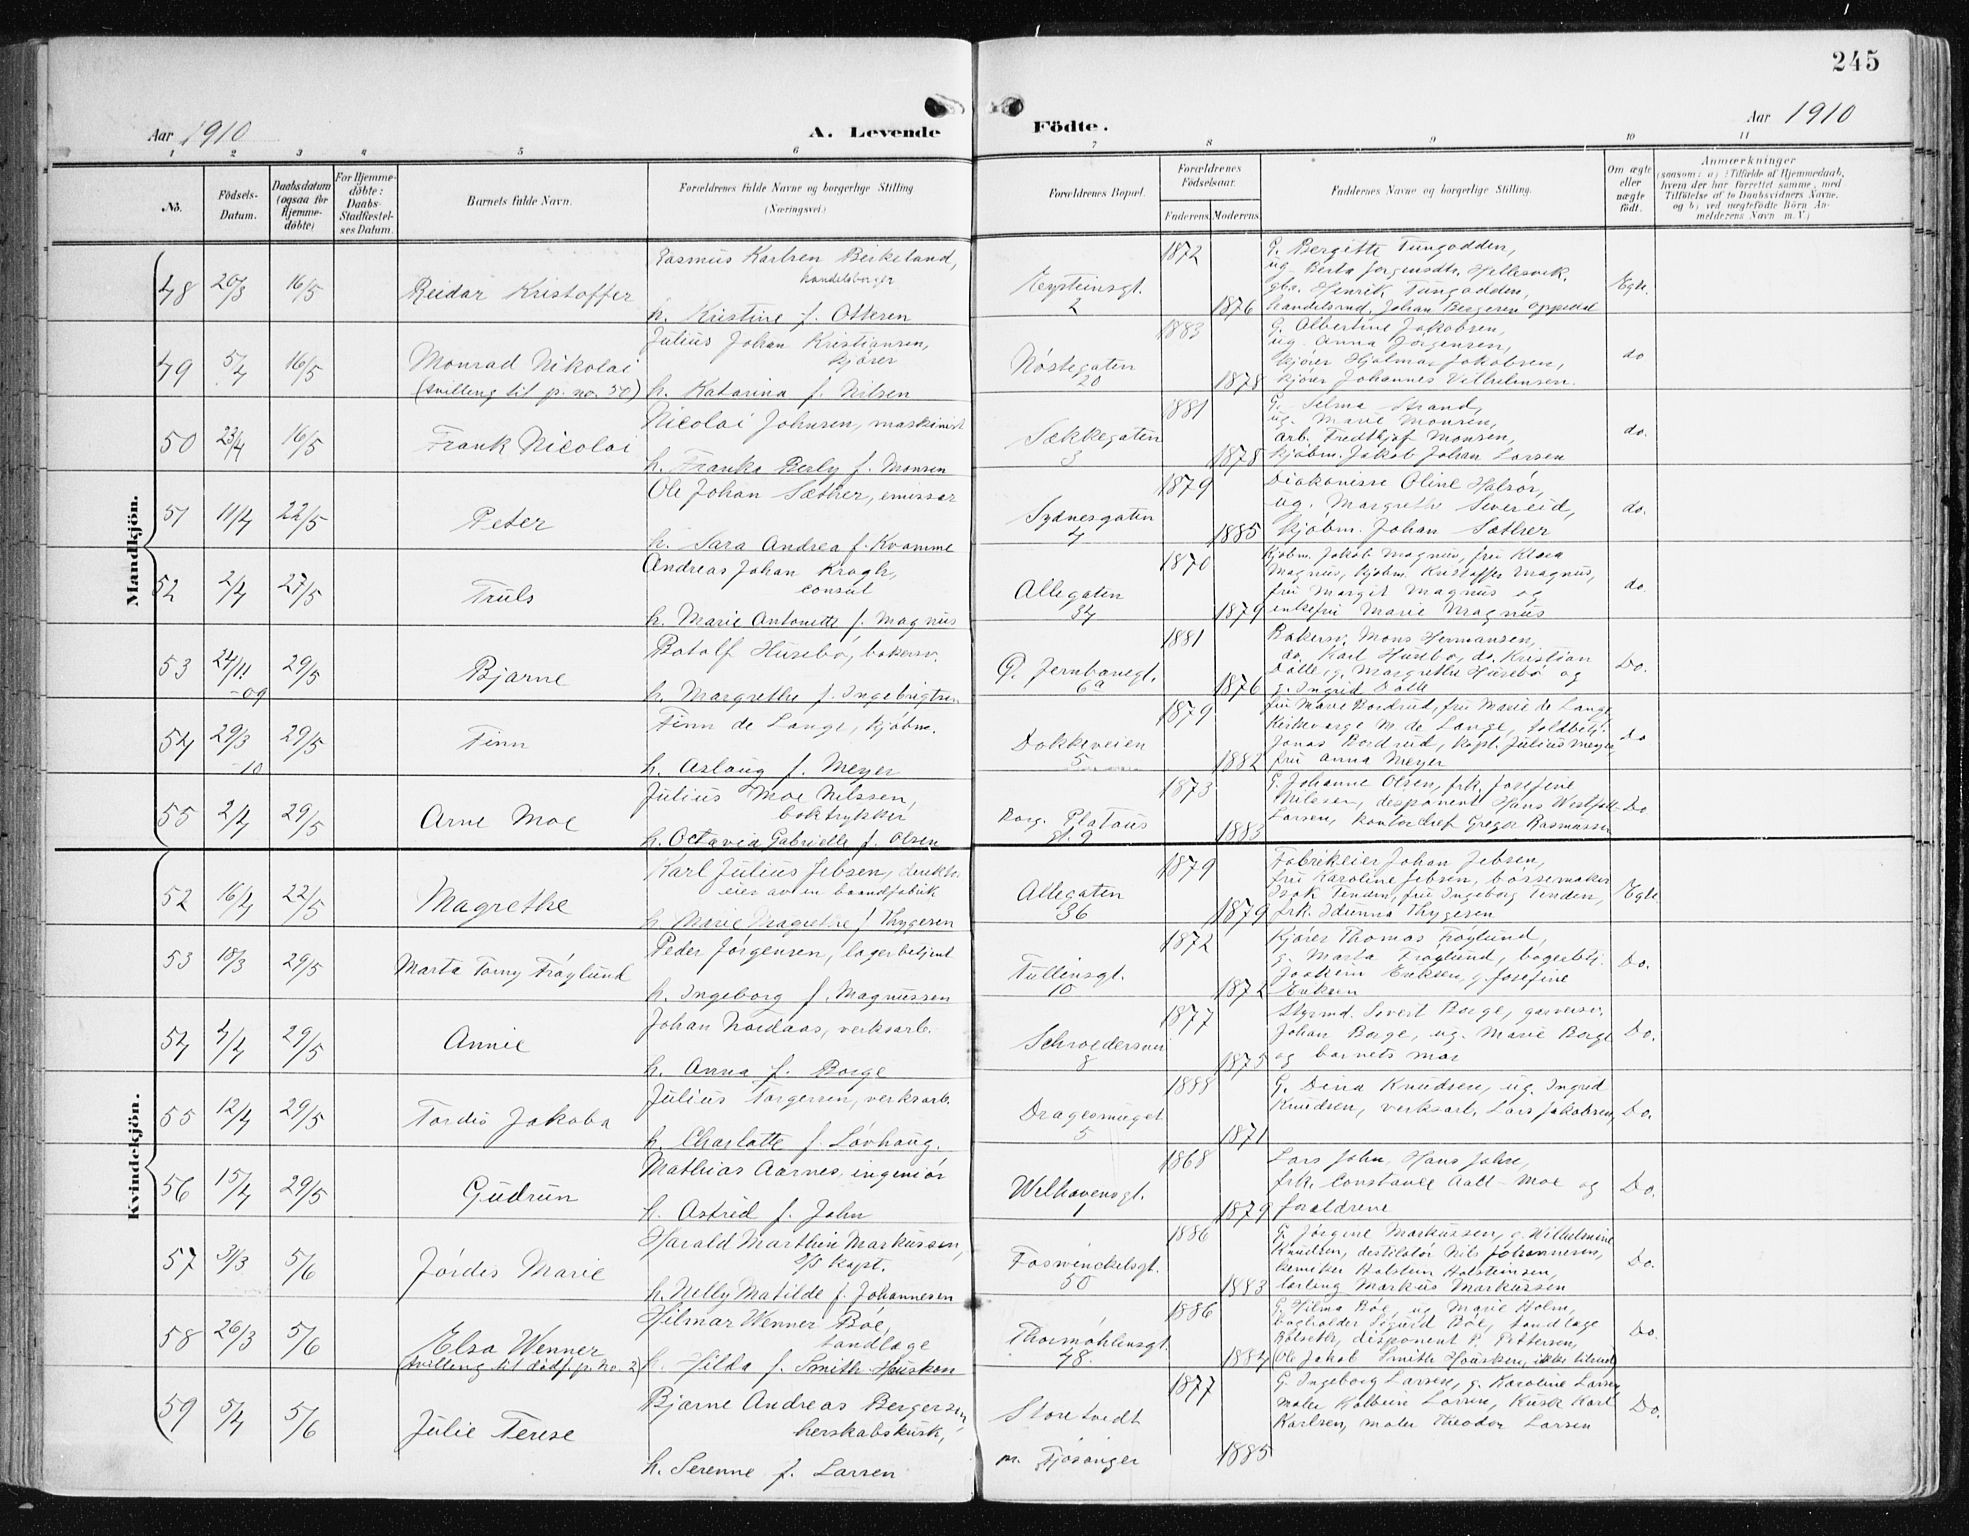 245
Aar 1910
A. Levende
Födte.
Aar 1910
1 2 3 4 5 6 7 8 9 10 11
No.
Födsels-Datum.
Daabsdatum (ogsaa for Hjemme-döbte)
For Hjemme-döbte: Daabs-Stadfæstel-ses Datum.
Barnets fulde Navn.
Forældrenes fulde Navne og borgerlige Stilling
(Næringsvei.)
Forældrenes Bopæl.
Forældrenes Födselsaar.
Faderens.
Moderens.
Faddernes Navne og borgerlige Stilling.
Om ægte eller uægte födt.
Anmærkninger
(saasom: a) i Tilfælde af Hjemmedaab,
hvem der har forrettet samme, med
Tilföielse af to Daabsvidners Navne,
og b) ved uægtefödte Börn An-
melderens Navn m. V.)
Mandkjön.
48 20/3 16/5 Reidar Kristoffer
Rasmus Karlsen Birkeland,
handelsborger
h. Kristine f. Ottesen
Eysteinsgt.
2
1872
1876
G. Bergitte Tungodden,
ug. Berta Jørgensdtr. Hellesvik,
gbr. Henrik Tungodden,
handelsmd. Johan Bergesen Oppedal
Egte.
49 5/4 16/5 Monrad Nikolai
(tvilling til p. no. 50)
Julius Johan Kristiansen,
kjører
h. Katarina f. Nilsen
Nöstegaten
20
1883
1878
G. Albertine Jakobsen,
ug. Anna Jørgensen,
kjører Hjalmar Jakobsen,
kjører Johannes Vilhelmsen.
do
50 23/4 16/5 Frank Nicolai
Nicolai Johnsen, maskinist
h. Franka Perly f. Monsen
Sækkegaten
3
1881
1878
G. Selma Strand,
ug. Marie Monsen,
arb. Fredthjof Monsen,
kjøbm. Jakob Johan Larsen
do.
51 11/4 22/5 Peter
Ole Johan Sæther, emissær
h. Sara Andrea f. Kvamme
Sydnesgaten
4
1879
1885
Diakonisse Oline Halsør,
ug. Margrethe Severeid,
kjøbm. Johan Sæther
do.
52 2/4 27/5 Truls
Andreas Johan Kragh,
consul
h. Marie Antonette f. Magnus
Allegaten
34
1870
1879
Kjøbm. Jakob Magnus, fru Klara
Magnus, kjøbm. Kristoffer Magnus,
fru Margit Magnus og
enkefru Marie Magnus
do.
53 24/11 -09 29/5 Bjarne
Botolf Husebø, bakersv.
h. Margrethe f. Ingebrigtsen
Ø. Jernbanegt.
6a
1881
1876
Bakersv. Mons Hermansen,
do. Karl Husebø, do. Kristian
Dalle, g. Margrethe Husebø og
g. Ingrid Dalle
Do.
54 29/3 -10 29/5 Finn
Finn de Lange, kjøbm.
h. Aslaug f. Meyer
Dokkeveien
5
1879
1882
fru Marie Bordrud, fru Marie de Lange
Kirkeverge M. de Lange, toldbetj.
Jonas Bordrud, kapt. Julius Meyer,
fru Anna Meyer
Do
55 2/4 29/5 Arne Moe
Julius Moe Nilssen,
boktrykker
h. Octavia Gabrielle f. Olsen
Platous
gt. 9
1873
1883
G. Johanne Olsen, frk. Josefine
Nilssen, disponent Hans Westfall
Larsen, kontorchef Gregor Rasmussen
Do
Kvindekjön.
52 16/4 22/5 Magrethe
Karl Julius Jebsen, direktør
eier av en baandfabrik
h. Marie Magrethe f. Thygesen
Allegaten
36
1879
1879
Fabrikeier Johan Jebsen,
fru Karoline Jebsen, børsemaker
Isak Tenden, fru Ingeborg Tenden,
frk. Idunna Thygesen
Egte
53 18/3 29/5 Marta Torny Frøylund
Peder Jørgensen, lagerbetjent
h. Ingeborg f. Magnussen
Tullinsgt.
10
1872
1872
Kjører Thomas Frøylund,
g. Marta Frøylund, lagerbtj.
Joakim Eriksen, g. Josefine
Eriksen
Do.
54 4/4 29/5 Annie
Johan Nordaas, verksarb.
h. Anna f. Borge
Schroedersvei
8
1877
1875
Styrmd. Severt Borge, garversv.
Johan Borge, ug. Marie Borge
og barnets mor
Do.
55 12/4 29/5 Tordis Jakoba
Julius Torgersen, verksarb.
h. Charlotte f. Løvhaug.
Dragesmuget
5
1888
1871
G. Dina Knudsen, ug. Ingrid
Knudsen, verksarb. Lars Jakobsen,
Do.
56 15/4 29/5 Gudrun
Mathias Aarnes, ingeniør
h. Astrid f. John
Welhavensgt.
1
1868
1879
Lars John, Hans John,
frk. Constance Aall-Moe og
forældrene
Do.
57 31/3 5/6 Jørdis Marie
Harald Marthin Markussen,
S/S kapt.
h. Nelly Matilde f. Johannesen
Fosswinckelsgt.
50
1886
1883
G. Jørgine Markussen, g. Wilhelmine
Knudsen, destilatør Nils Johannesen,
kemiker Holstein Holsteinsen,
lærling Markus Markussen
Do.
58 26/3 5/6 Elsa Wenner
(tvilling til dødf. p. no. 2)
Hilmar Wenner Bøe,
tandlæge
h. Hilda f. Smith-Housken
Thormøhlensgt.
48.
1886
1884
G. Hilma Bøe, ug. Marie Holm,
bogholder Sigurd Bøe, tandlæge
Røtseth, disponent P. Pettersen,
Ole Jakob Smith Housken, ikke tilstede
Do.
59 5/4 5/6 Julie Terese
Bjarne Andreas Bergersen,
herskabskusk,
h. Serenne f. Larsen
Storetvedt
pr. Fjøsanger
1877
1885
G. Ingeborg Larsen, g. Karoline Larsen
maler Kolbein Larsen, Kusk Karl
Karlsen, maler Theodor Larsen
Do.